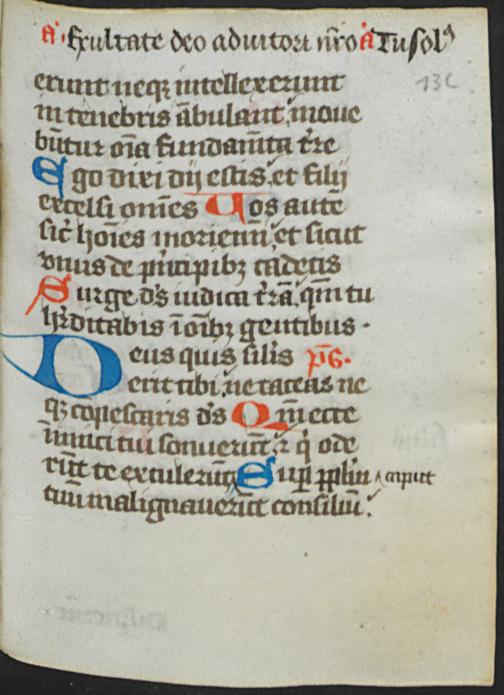 a. Exultate deo adiutori nr̄o a Tu sol⁹
132
erunt neqꝫ intellexerunt
in tenebris ābulant. moue
būtur oīa fundam̄ta t̄re
Ego dixi dij estis. et filij
excelsi omēs Uos autē
sic̄ hoīes moriemī. et sicut
vnus de p̄ncipibꝫ cadetis
Surge ds̄ iudica t̄rā. qm̄ tu
hr̄ditabis ī oībꝫ gentibus.
Deus quis silis pͫs.
erit tibi. ne taceas ne
qꝫ cōpescaris ds̄ Qm̄ ecce
inimici tui sonuerūt. ⁊ q̄ ode
rūt te extulerūt Sup̄ pplm̄ caput
tuū malignauerūt consiliū.